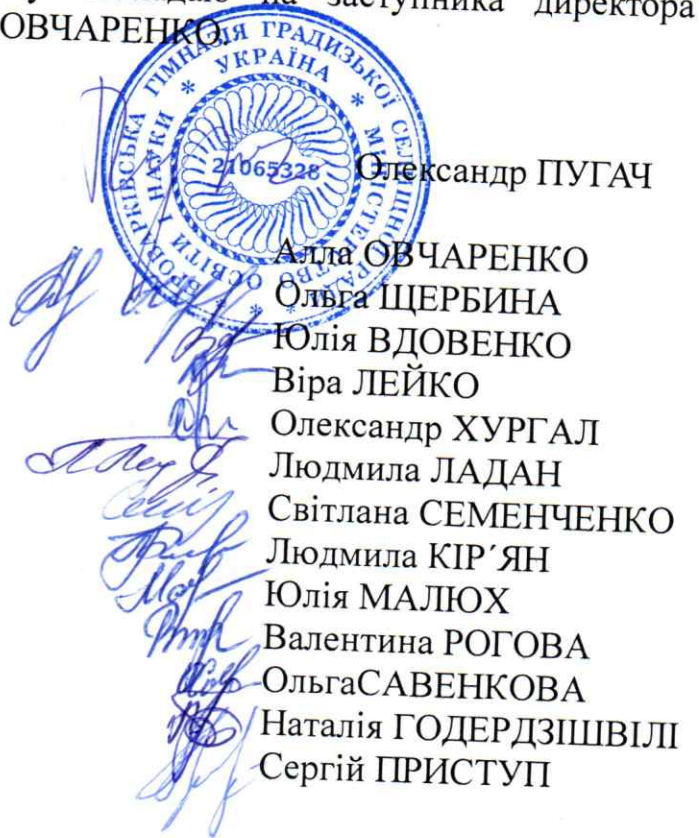 на заступника директора
ОВЧАРЕНКО.
БРОВАРКІВСЬКА ГІМНАЗІЯ ГРАДИЗЬКОЇ СЕЛИЩНОЇ РАДИ
УКРАЇНА * МІНІСТЕРСТВО ОСВІТИ І НАУКИ *
21065328
Олександр ПУГАЧ
Алла ОВЧАРЕНКО
Ольга ЩЕРБИНА
Юлія ВДОВЕНКО
Віра ЛЕЙКО
Олександр ХУРГАЛ
Людмила ЛАДАН
Світлана СЕМЕНЧЕНКО
Людмила КІР´ЯН
Юлія МАЛЮХ
Валентина РОГОВА
ОльгаСАВЕНКОВА
Наталія ГОДЕРДЗІШВІЛІ
Сергій ПРИСТУП